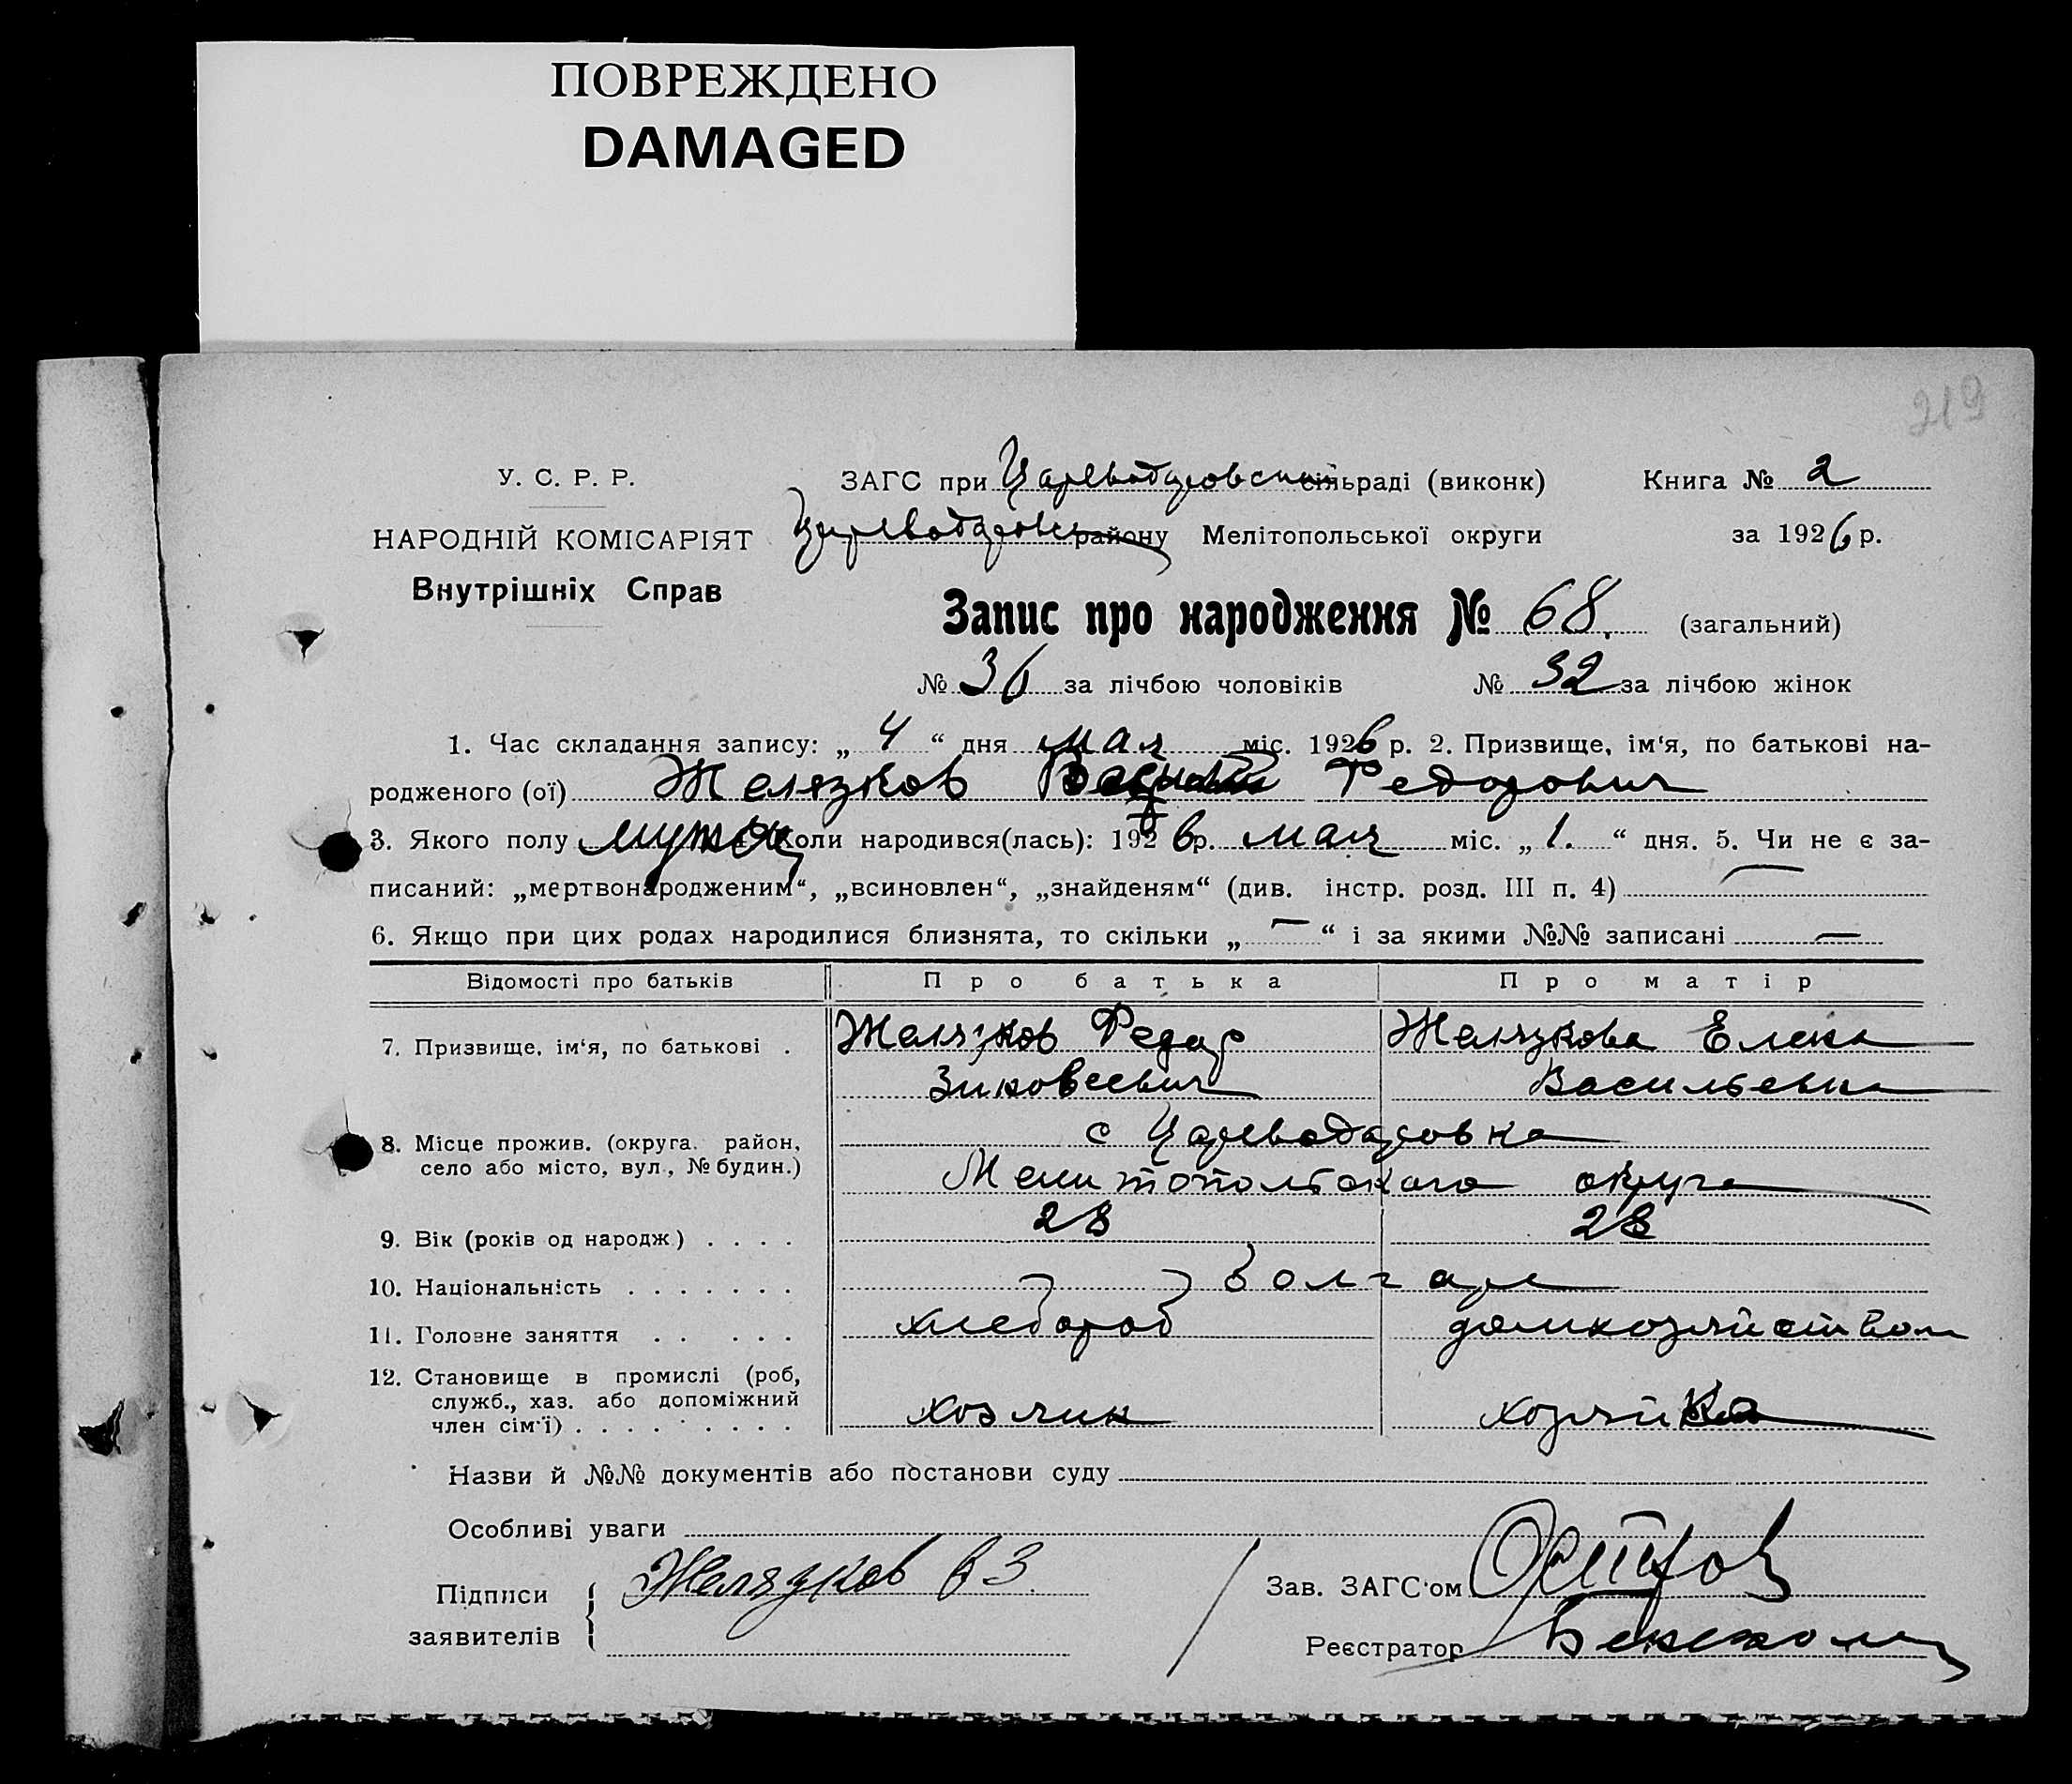 ПОВРЕЖДЕНО
DAMAGED
219
У. С. Р. Р.
НАРОДНІЙ КОМІСАРІЯТ
Внутрішніх Справ
ЗАГС при Царевода­ровский сільраді (виконк)
Царевода­ровск району Мелітопольської округи
Книга № 2
за 1926 р.
Запис про народження № 68. (загальний)
№ 36 за лічбою чоловіків № 32 за лічбою жінок
1. Час складання запису: „ 4 “ дня мая міс. 1926 р. 2. Призвище, ім‘я, по батькові на-
родженого (ої) Желязков Федорович
3. Якого полу муж Коли народився(лась): 1926 р. мая міс. „ 1. “ дня. 5. Чи не є за-
писаний: „мертвонародженим“, „всиновлен“, „знайденям“ (див. інстр. розд. III п. 4) —
6. Якщо при цих родах народилися близнята, то скільки „ — “ і за якими №№ записані —
Відомості про батьків Про батька Про матір
7. Призвище, ім‘я, по батькові . Желязков Федор Желязкова Елена
Зиновеевич Васильевна
8. Місце прожив. (округа. район, с Цареводаровка
село або місто, вул., № будин.) Мелитопольского округа
9. Вік (років од народж) . . . . 28 28
10. Національність . . . . . . . болгаре
11. Головне заняття . . . . . хлебороб домхозяйством
12. Становище в промислі (роб,
служб., хаз. або допоміжний
член сім‘ї) . . . . . . . . хозяин хозяйка
Назви й №№ документів або постанови суду
Особливі уваги
Підписи
заявителів
Желязков В З.
Зав. ЗАГС‘ом
Реєстратор